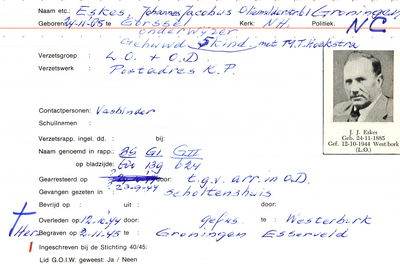 Naam etc.: Eskes, Johannes Jacobus Groningen
Geboren: 24-11-85 te Gorssel Kerk: N.H. Politiek: NC
onderwyzer
Gehuwd 5 kind. met M.T. Hoekstra
Verzetsgroep : L.O. + O.D.
Verzetswerk : Postadres K.P.
Contactpersonen: Vasbinder
Schuilnamen :
Verzetsrapp. ingel. dd. : bij:
Naam genoemd in rapp.: GI GII
op bladzijde: 139 624
Gearresteerd op door: t.g.v. arr. in O.D.
23-9-44
Gevangen gezeten in : Scholtenshuis
Bevrijd op : uit : door:
Overleden op : 12-10-44 gefus. te Westerbork
Her Begraven op : 2-11-45 te : Groningen Esserveld
Ingeschreven bij de Stichting 40/45:
Lid G.O.I.W. geweest: Ja / Neen
J. J. Eskes
Geb. 24-11-1885
Gef. 12-10-1944 West.bork
(L.O.)